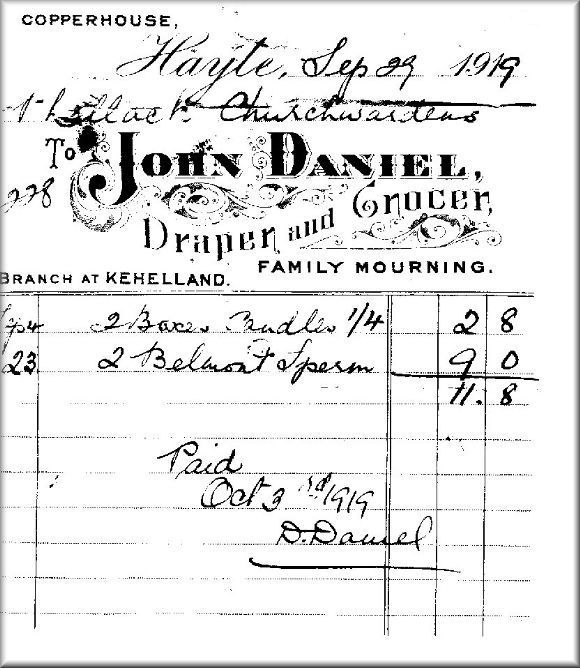 COPPERHOUSE,
Hayle, Sep 29 1919
Phillack Churchwardens
To JOHN DANIEL,
228
Draper and Grocer,
FAMILY MOURNING.
BRANCH AT KEHELLAND.
Sep 4 2 Boxes Candles 1/4 2 8
23 2 Belmont Sperm 9 0
11. 8
Paid
Oct 3rd 1919
D. Daniel